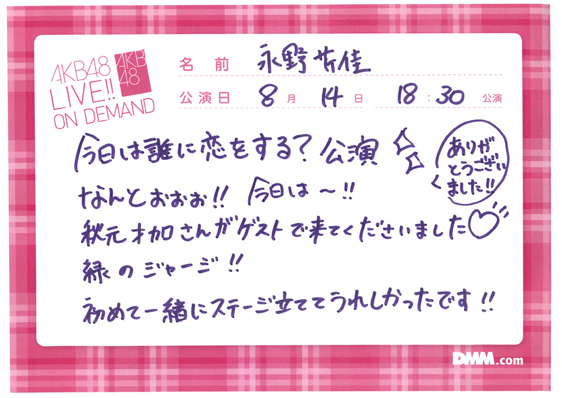 AKB48
LIVE!!
ON DEMAND
AKB
48
名前 永野芹佳
公演日 8月 14日 18:30 公演
今日は誰に恋をする？公演
ありが
とうござい
ました!!
なんとおおぉ!! 今日は〜!!
秋元才加さんがゲストで来てくださいました♡
緑のジャージ!!
初めて一緒にステージ立ててうれしかったです!!
DMM.com